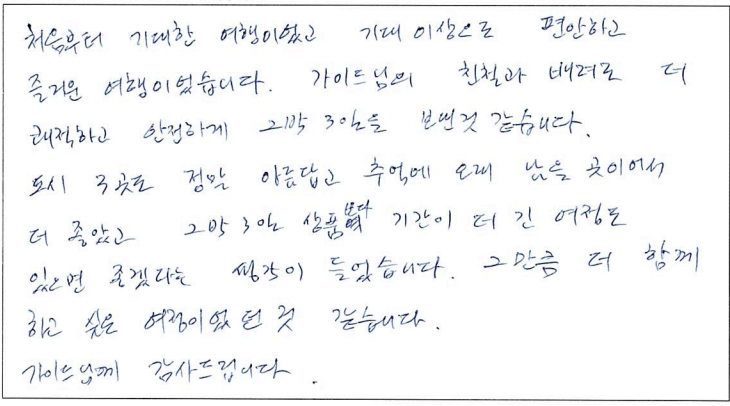 처음부터 기대한 여행이었고 기대 이상으로 편안하고
즐거운 여행이었습니다. 가이드님의 친철과 배려로 더
쾌적하고 안전하게 2박 3일을 보낸것 같습니다.
도시 3곳도 정말 아름답고 추억에 오래 남을 곳이어서
더 좋았고 2박 3일 상품보다 기간이 더 긴 여정도
있으면 좋겠다는 생각이 들었습니다. 그만큼 더 함께
하고 싶은 여정이었던 것 같습니다.
가이드님께 감사드립니다.